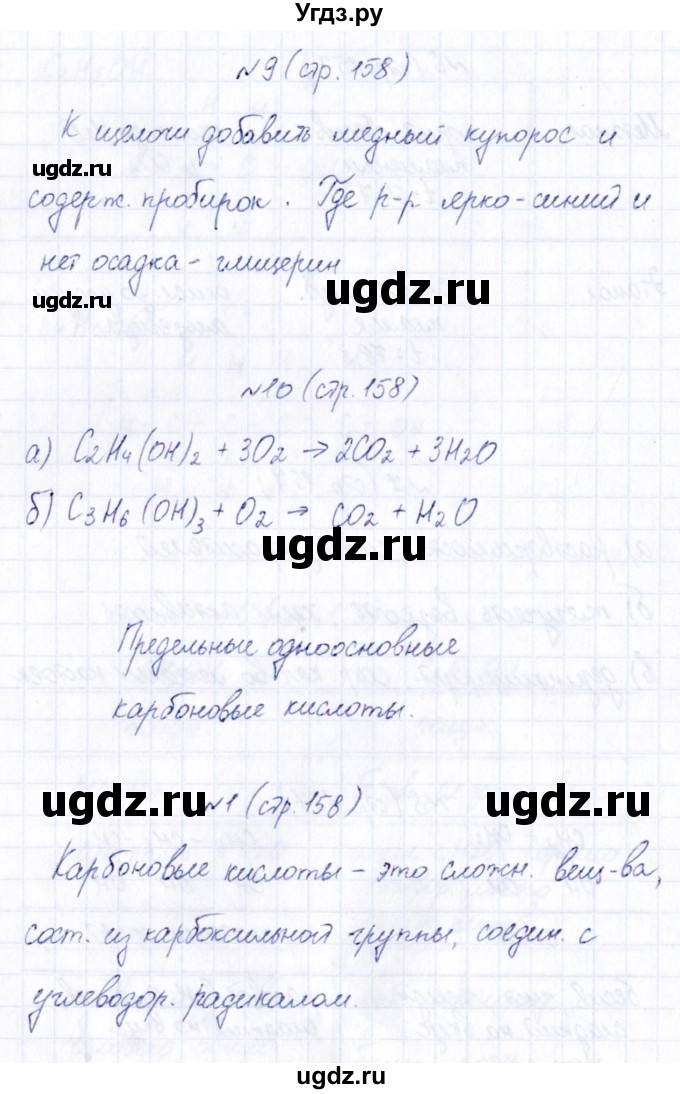 Угдз.ру
№9 (стр. 158)
К щелочи добавить медный купорос и
содерж. пробирок. Где р-р ярко-синий и
нет осадка - глицерин
ugdz.ru
ugdz.ru
ugdz.ru
№10 (стр. 158)
а) C2H4(OH)2 + 3O2 → 2CO2 + 3H2O
б) C3H6(OH)3 + O2 → CO2 + H2O
ugdz.ru
Предельные одноосновные
карбоновые кислоты.
ugdz.ru
№1 (стр. 158)
ugdz.ru
Карбоновые кислоты - это сложн. вещ-ва,
сост. из карбоксильной группы, соедин. с
углеводор. радикалом.
ugdz.ru
ugdz.ru